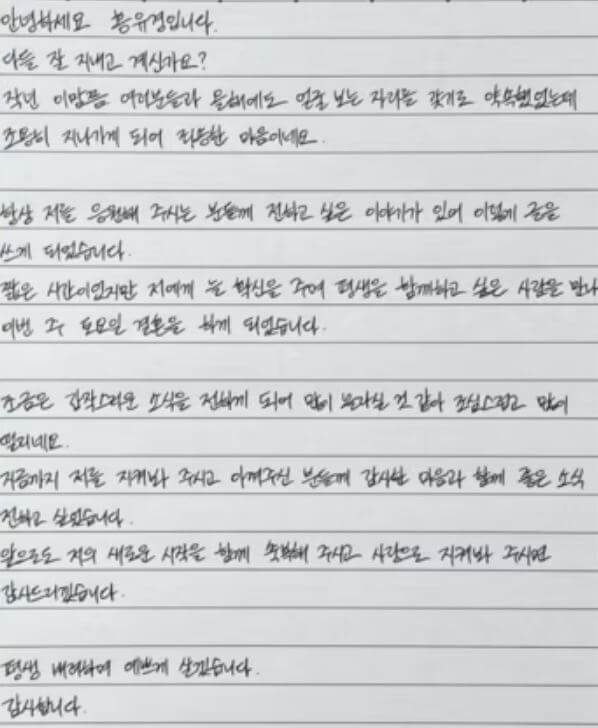 안녕하세요 황유경입니다.
다들 잘 지내고 계신가요?
작년 이맘쯤 여러분들과 올해에도 얼굴 보는 자리를 갖기로 약속했었는데
조용히 지나가게 되어 죄송한 마음이네요.
항상 저를 응원해 주시는 분들께 전하고 싶은 이야기가 있어 이렇게 글을
쓰게 되었습니다.
짧은 시간이었지만 저에게 늘 확신을 주며 평생을 함께하고 싶은 사람을 만나
이번 주 토요일 결혼을 하게 되었습니다.
조금은 갑작스러운 소식을 전하게 되어 많이 놀라실 것 같아 조심스럽고 많이
떨리네요.
지금까지 저를 지켜봐 주시고 아껴주신 분들께 감사한 마음과 함께 좋은 소식
전하고 싶었습니다.
앞으로도 저의 새로운 시작을 함께 축복해 주시고 사랑으로 지켜봐 주시면
감사드리겠습니다.
평생 배려하며 예쁘게 살겠습니다.
감사합니다.